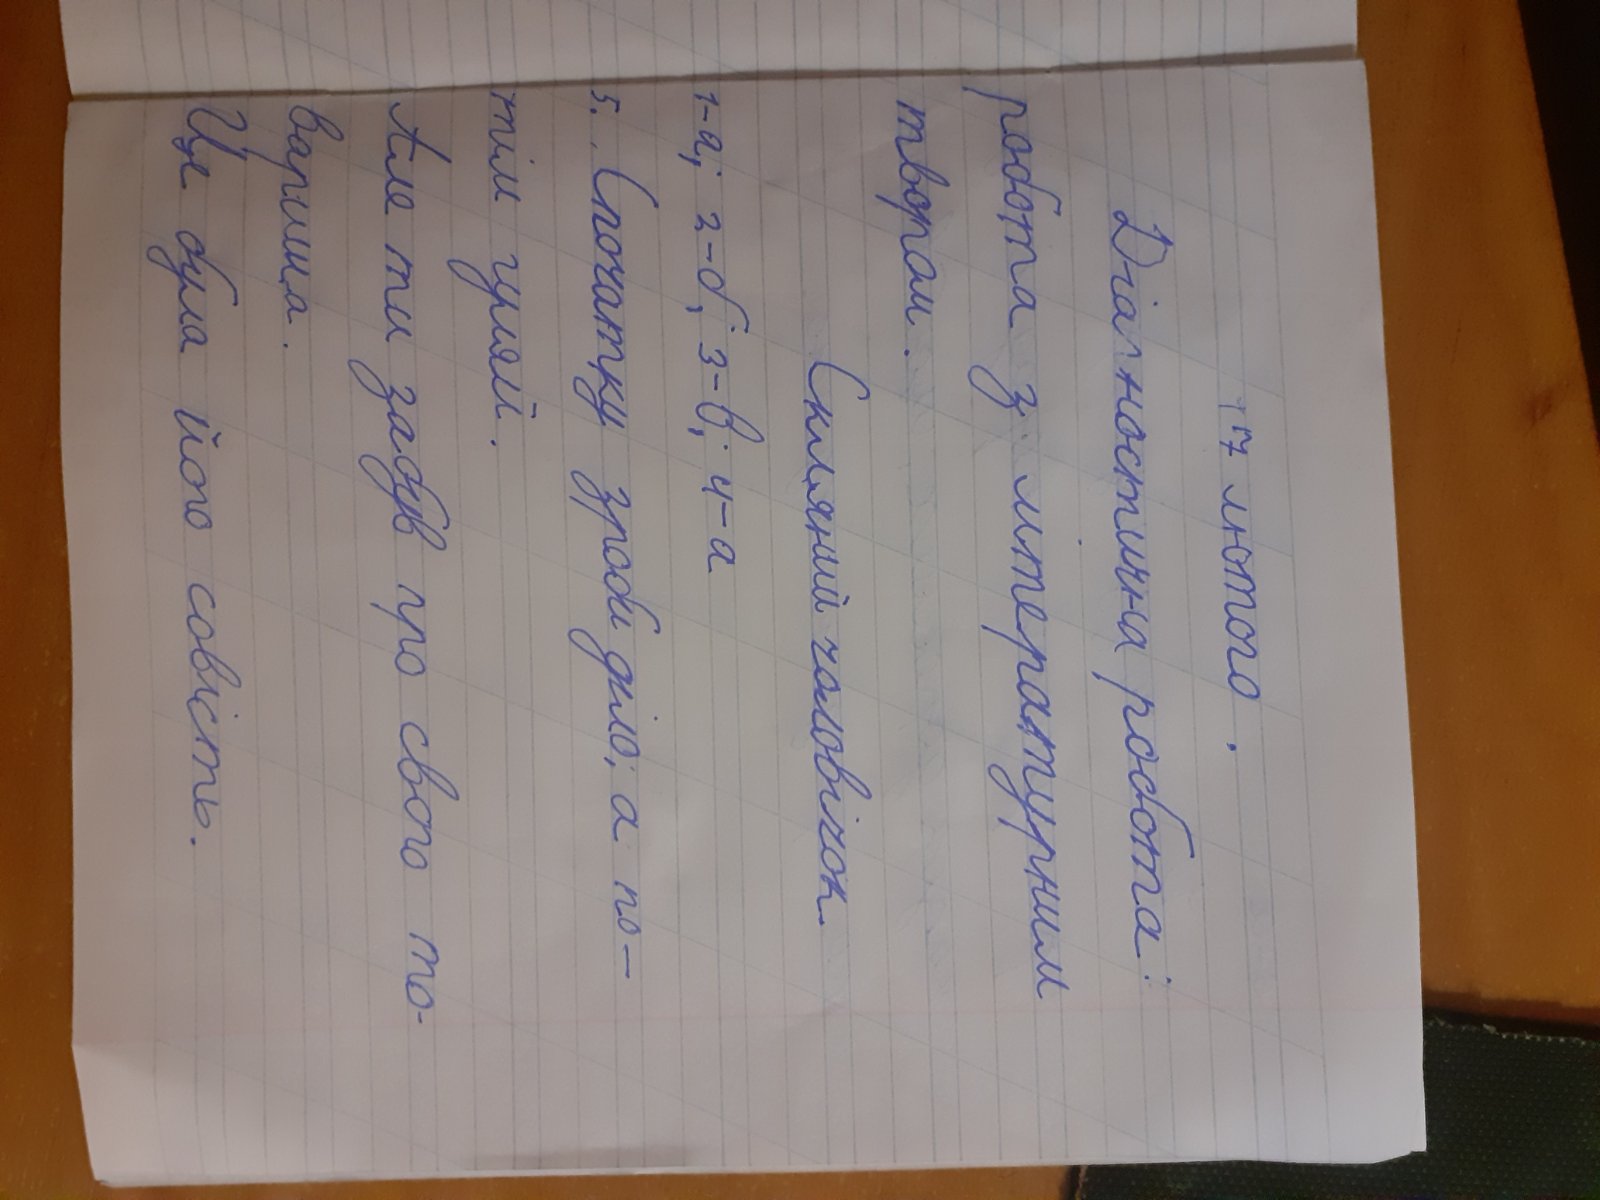 17 лютого.
Діагностична робота:
робота з літературним
твором.
Скляний чоловічок.
1-а; 2-б; 3-в; 4-а
5. Спочатку зроби діло, а по-
тім гуляй.
Але ти забув про свого то-
вариша.
Це була його совість.